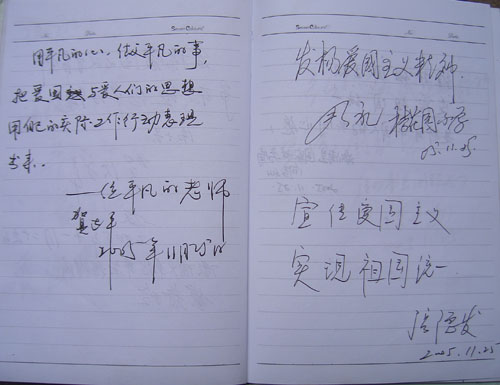 用平凡的心、做平凡的事,
把爱国与爱人们的思想
用他的实际工作行动表现
出来..
——一位平凡的老师
2005年11月25日
发扬爱国主义精神.
05.11.25.
宣传爱国主义
实现祖国统一
2005.11.25